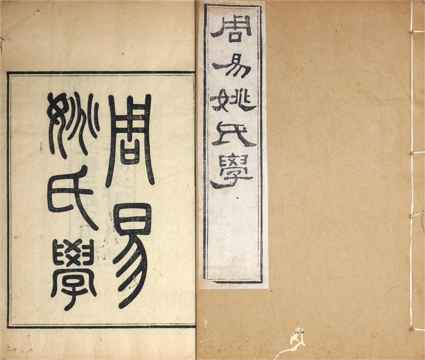 周易
姚氏學
周易姚氏學